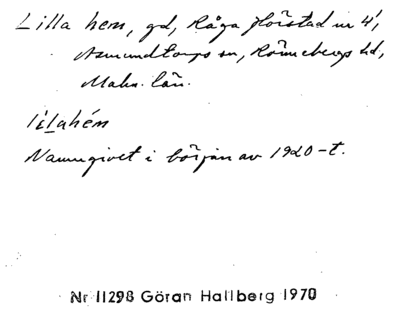 Lilla hem, gd, Råga Hörstad nr 4¹,
Asmundtorps sn, Rönnebergs hd,
Malm. län.
lìlahém
Namngivet i början av 1920-t.
Nr 11298 Göran Hallberg 1970